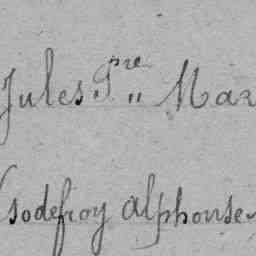 Jules, Pre „ Mar
Godefroy Alphonse